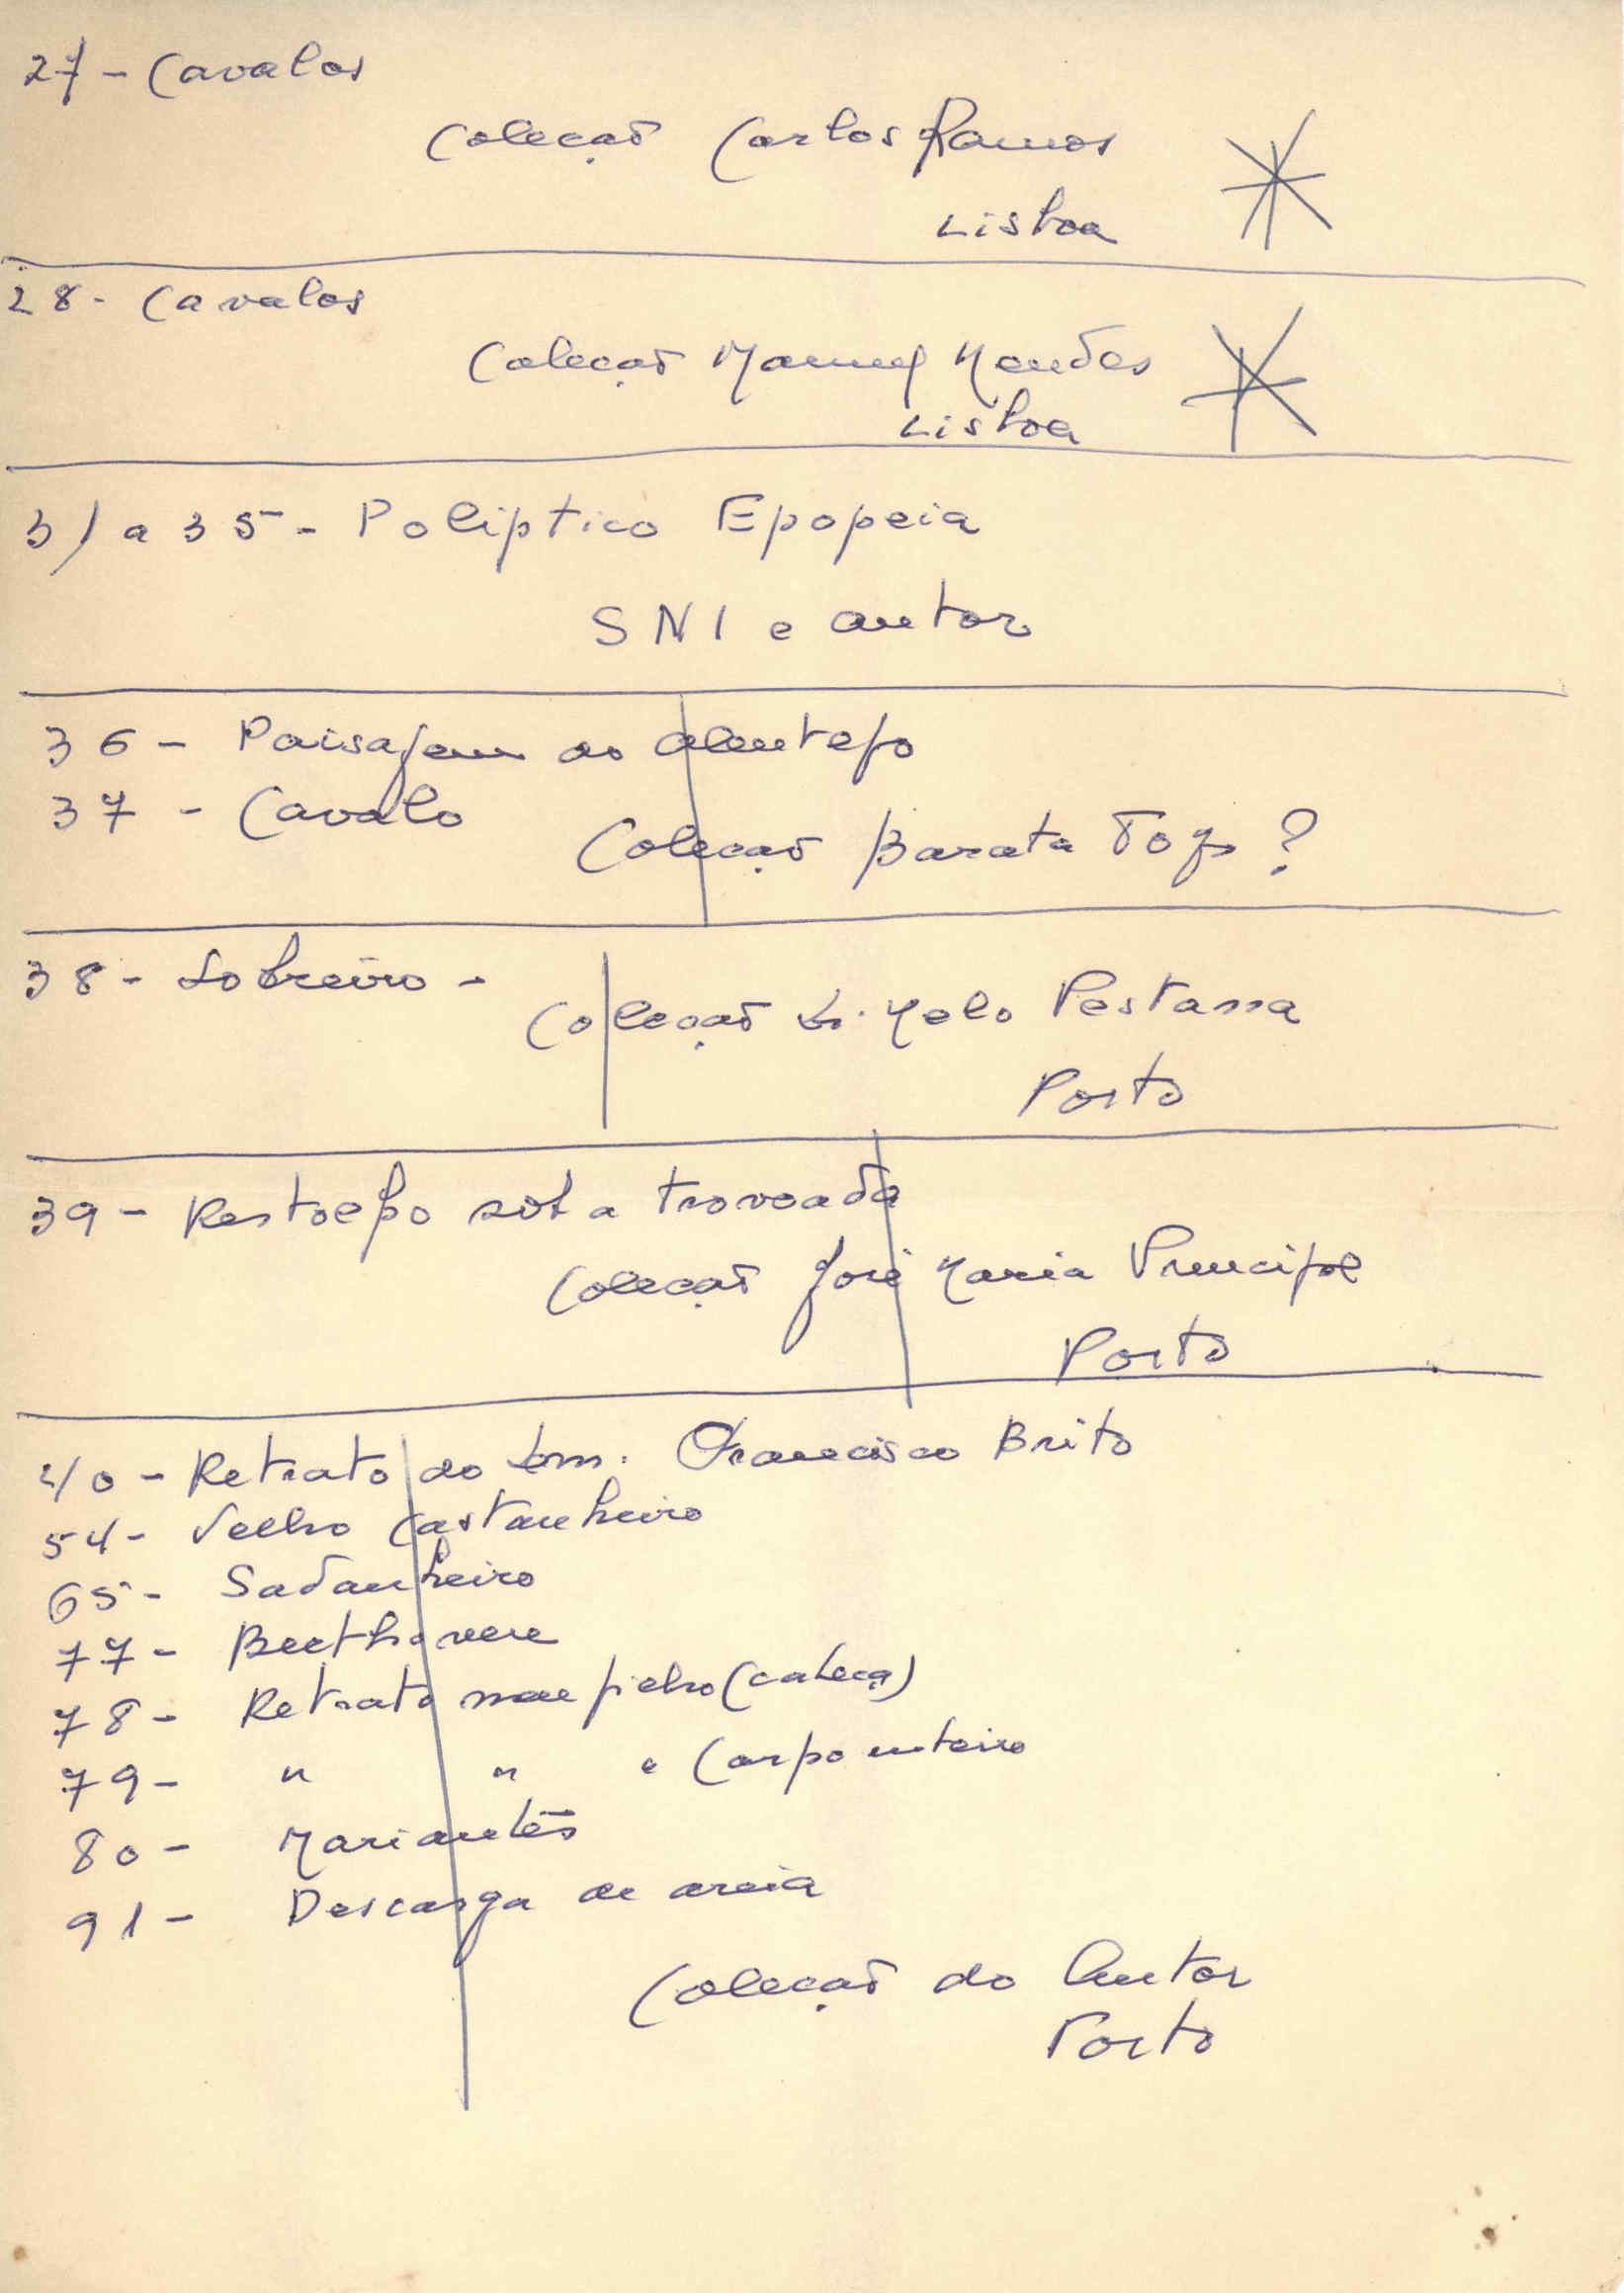 27 - Cavalos
Coleção Carlos Ramos
Lisboa
28 - Cavalos
Coleção Manuel Mendes
Lisboa
31 a 35 - Poliptico Epopeia
SNI e autor
36 - Paisagem do Alentejo
37 - Cavalo
Coleção Barata ?
38 - Sobreiro -
Coleção Dr. Melo Pestana
Porto
39 - Restolho sob a trovoada
Coleção José Maria Principe
Porto
40 - Retrato do Francisco Brito
54 - Velho Castanheiro
65 - Gadanheiro
77 - Beethoven
78 - Retrato meu filho (cabeça)
79 - " " " Corpo inteiro
80 -
91 - Descarga de areia
Coleção do Autor
Porto